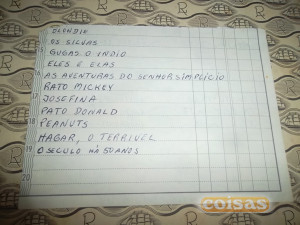 BLONDIE
OS SILVAS
GUGAS O INDIO
ELES E ELAS
AS AVENTURAS DO SENHOR SIMPLÍCIO
RATO MICKEY
JOSEFINA
PATO DONALD
PEANUTS
HAGAR, O TERRIVEL
O SECULO HÁ 50 ANOS
16
17
18
19
20
coisas
R
R